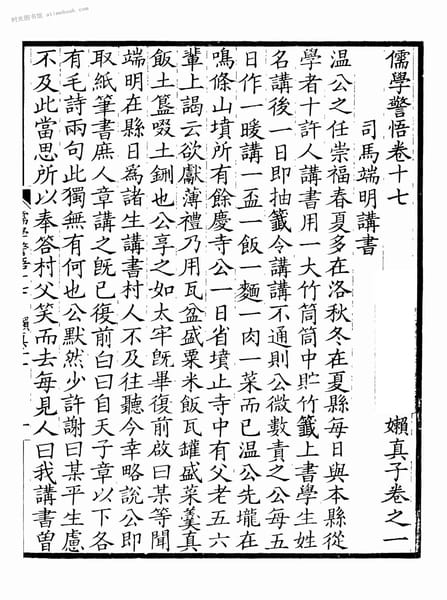 时光图书馆 alimebook.com
儒學警悟卷十七
嬾真子卷之一
司馬端明講書
温公之任崇福春夏多在洛秋冬在夏縣每日與本縣從
學者十許人講書用一大竹筒筒中貯竹籤上書學生姓
名講後一日即抽籤令講講不通則公微數責之公每五
日作一暖講一盃一飯一麵一肉一菜而已温公先壠在
鳴條山墳所有餘慶寺公一日省墳止寺中有父老五六
輩上謁云欲獻薄禮乃用瓦盆盛粟米飯瓦罐盛菜羹真
飯土簋啜土鉶也公享之如太牢既畢復前啟曰某等聞
端明在縣日為諸生講書村人不及往聽今幸略說公即
取紙筆書庶人章講之既已復前白曰自天子章以下各
有毛詩兩句此獨無有何也公默然少許謝曰某平生慮
不及此當思所以奉答村父笑而去每見人曰我講書曾